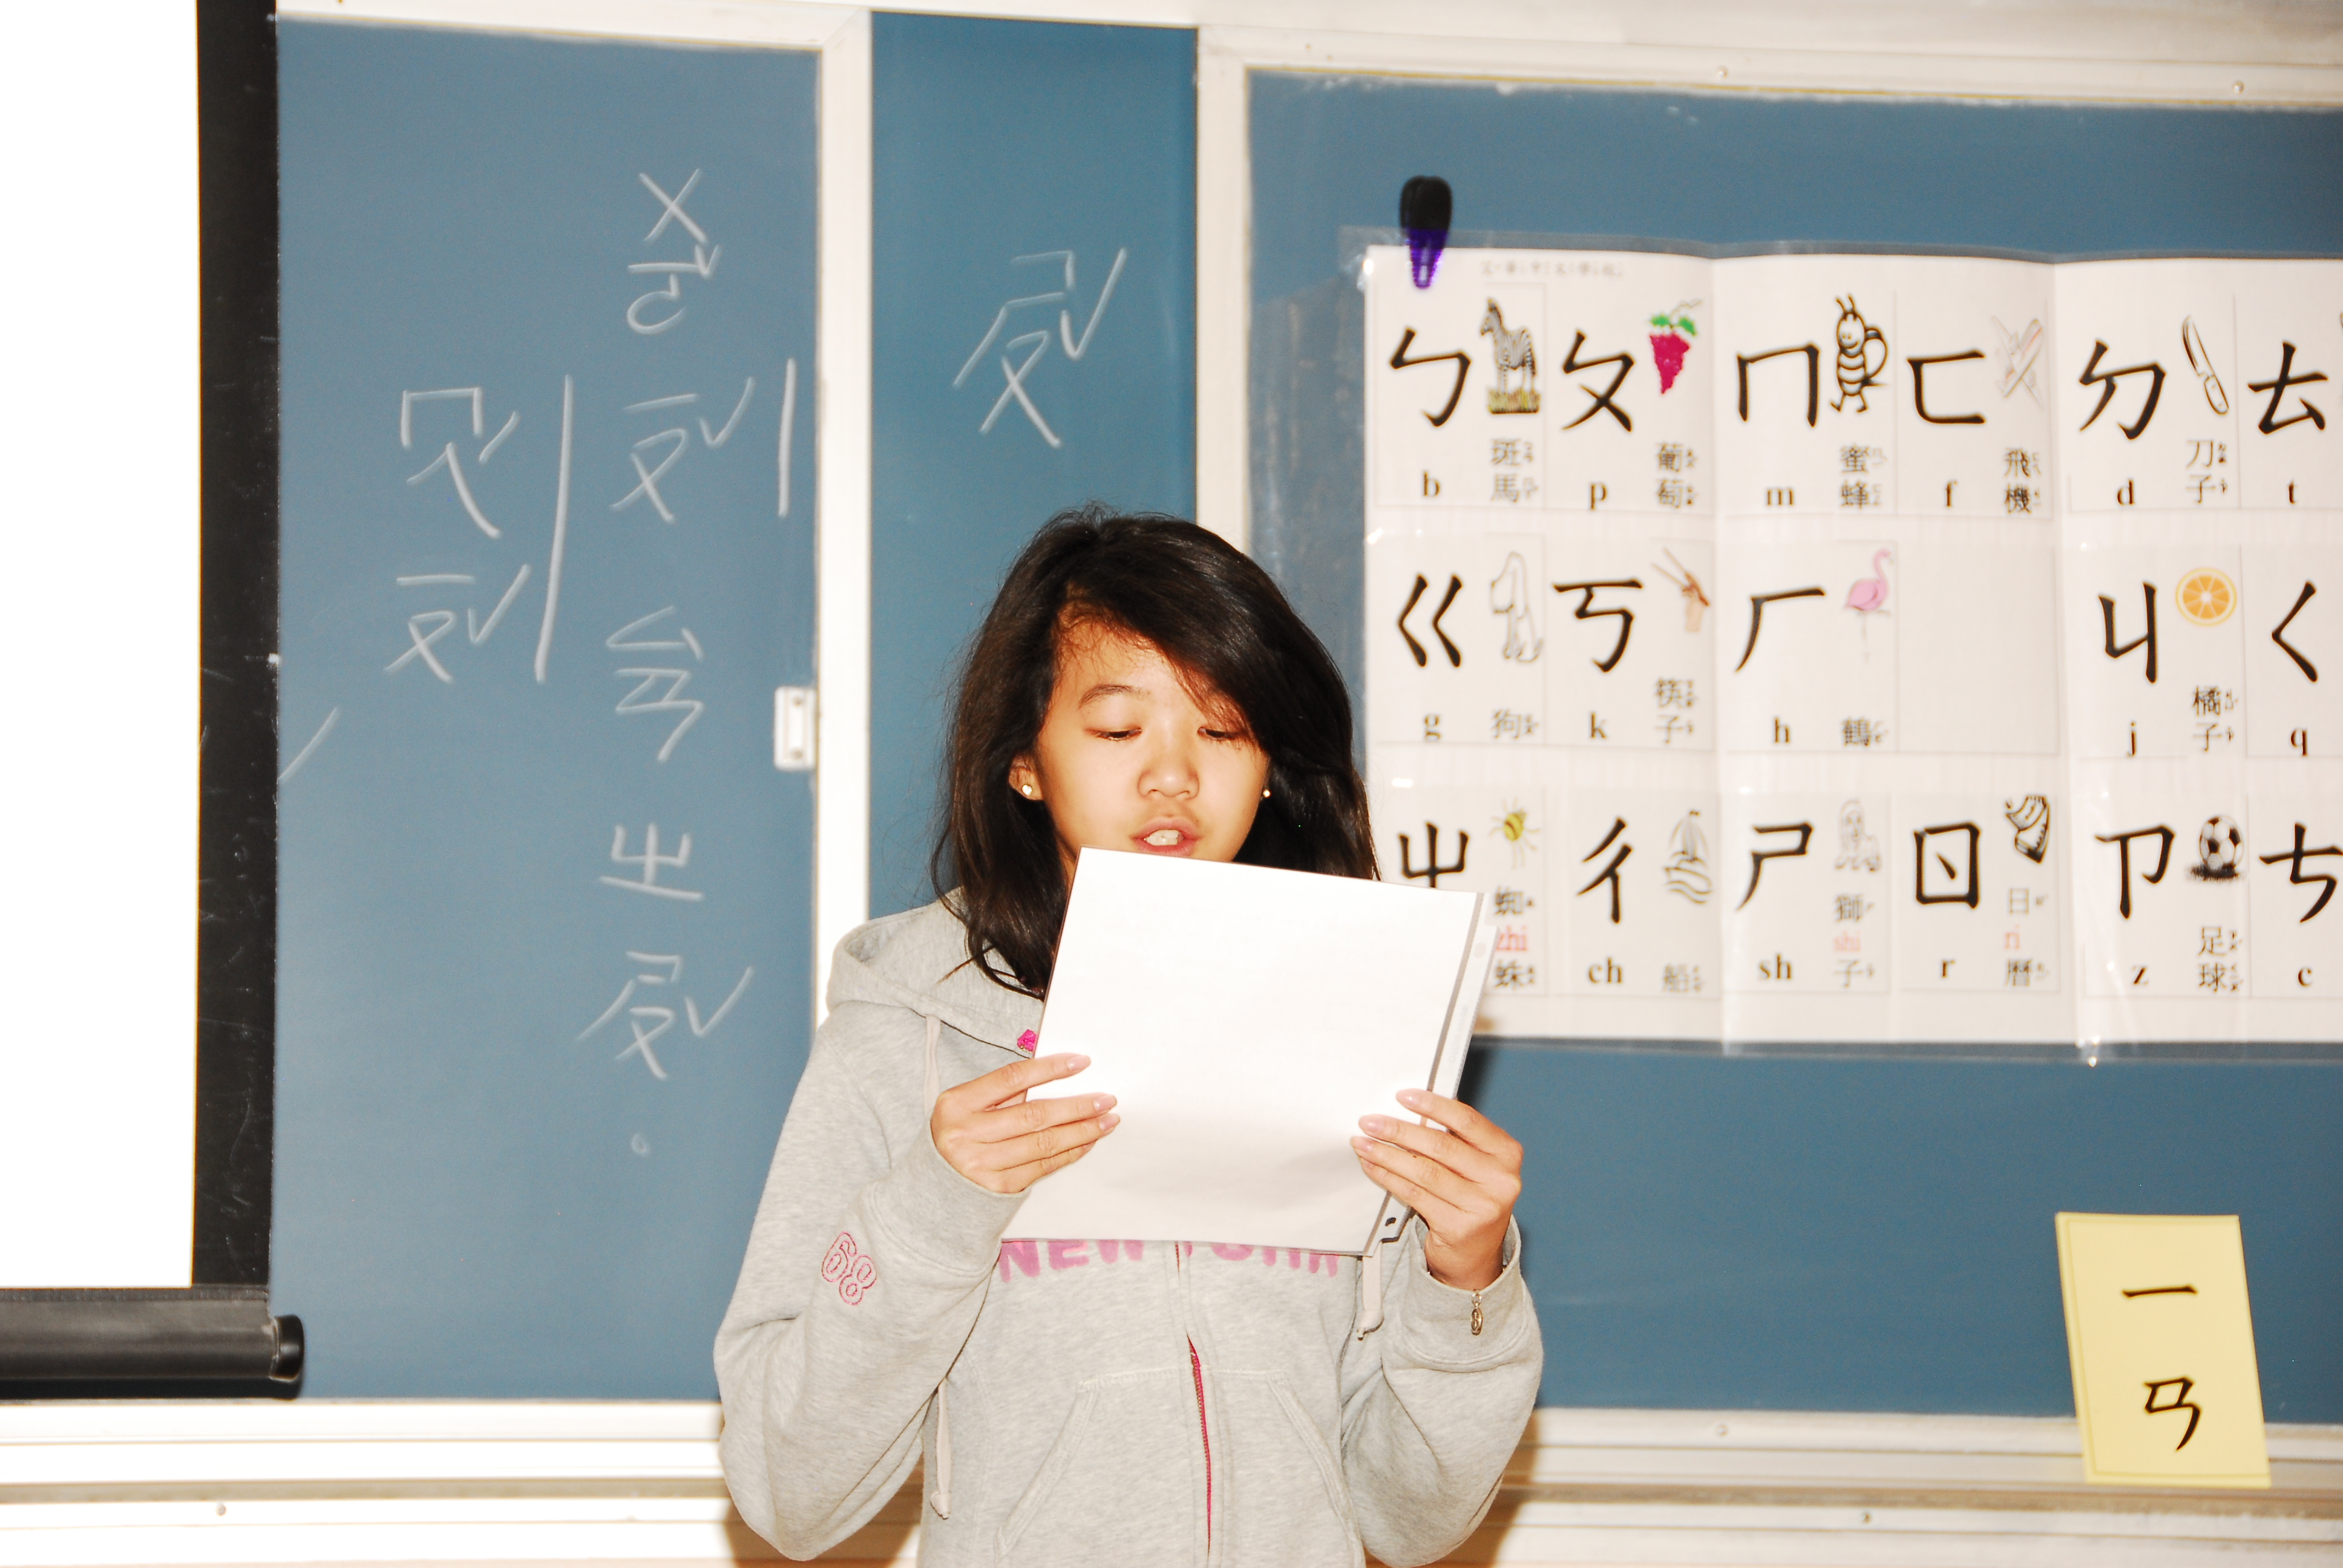 ㄨㄛˇ
ㄙㄢ
ㄓ
ㄕㄡˇ
。
ㄕㄡˇ
ㄅ ㄆ ㄇ ㄈ ㄉ ㄊ
斑馬 葡萄 蜜蜂 飛機 刀子
b p m f d t
ㄍ ㄎ ㄏ ㄐ ㄑ
狗 筷子 鶴 橘子
g k h j q
ㄓ ㄔ ㄕ ㄖ ㄗ ㄘ
蜘蛛 船 獅子 日曆 足球
zhi shi ri
ch sh r z c
NEW YORK
68
ㄧㄢ